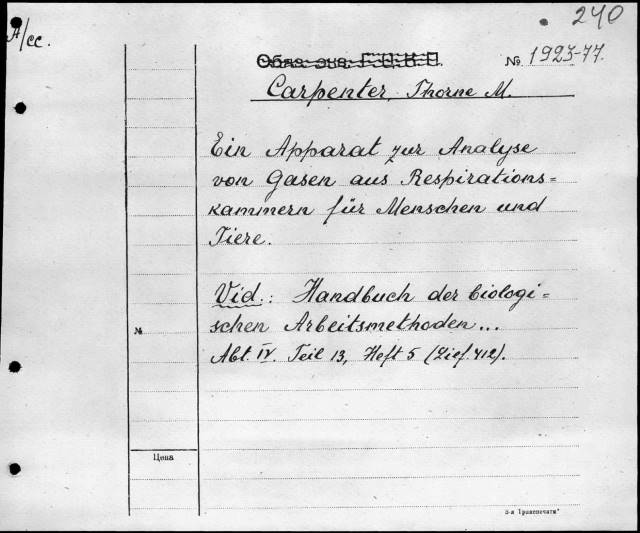 240
А/сс.
Обяз. экз. Г.Ц.К.П.
№ 1923-77.
Carpenter, Thorne M.
Ein Apparat zur Analyse
von Gasen aus Respirations=
kammern für Menschen und
Tiere.
Vid.: Handbuch der biologi=
schen Arbeitsmethoden...
№
Abt. IV. Teil 13, Heft 5 (Lief. 412).
Цена